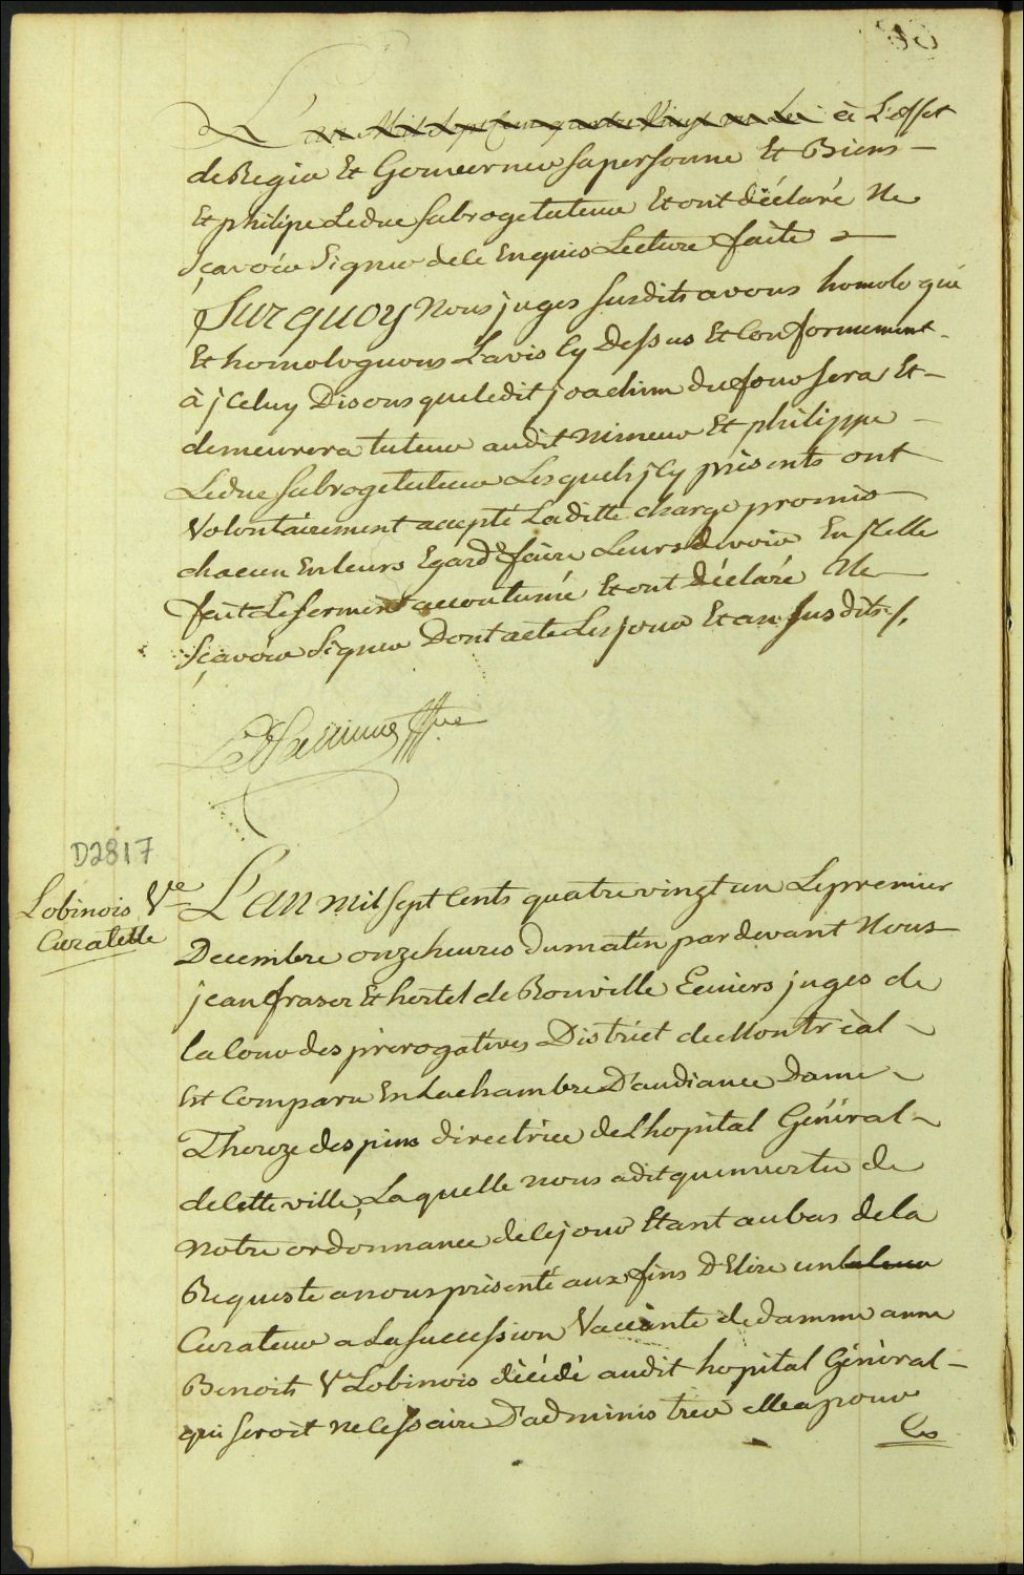 L'an Mil Sept Cens quatre Vingt un Le à L'effet
de Regir Et Gouverner sa personne Et Biens —
Et philipe Leduc subrogé tuteur Et ont déclaré Ne
sçavoir Signer de ce Enquis Lecture faite —
Sur quoy Nous juges susdits avons homologué
Et homologuons L'avis Cy Dessus Et Conformement
à jceluy Disons que ledit joachim dufour sera Et —
demeurera tuteur audit Mineur Et philippe —
Leduc subrogé tuteur Lesquels jcy présents ont
Volontairement accepté Laditte charge promis
chacun En leurs Egard faire Leurs devoir En jcelle
fait Le serment accoutumé Et ont déclaré Ne
sçavoir Signer Dont acte Les jour Et an susdits /.
D2817
Lobinois Ve
Curatelle
L'an mil sept Cents quatre vingt un Le premier
Decembre onze heures du matin pardevant Nous
jean fraser Et hertel de Rouville Ecuiers juges de
la Cour des prérogatives District de Montréal
Est Comparu En La chambre D'audiance Dame
Thereze despins directrice de L'hopital Général
de Cette ville, Laquelle nous a dit qu'en vertu de
Notre ordonnance de Ce jour Etant au bas de la
Requeste a nous présenté aux fins D'Elire un tuteur
Curateur a La succession Vaccante de damme anne
Benoits Ve Lobinois décédé audit hopital Général —
qui seroit necessaire D'administrer elle a pour
Ces